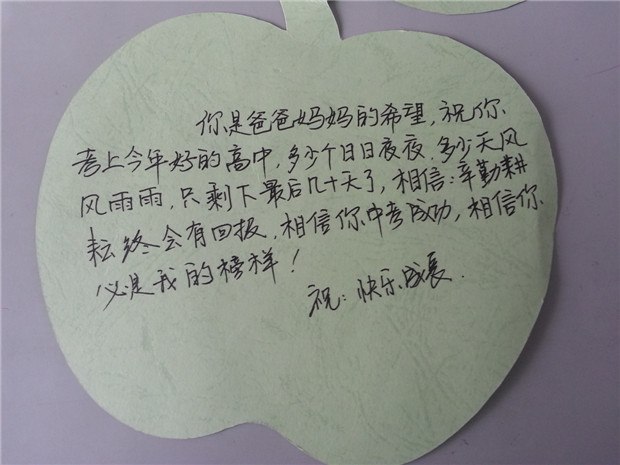 你是爸爸妈妈的希望,祝你
考上今年好的高中,多少个日日夜夜.多少天风
风雨雨,只剩下最后几十天了,相信:辛勤耕
耘终会有回报,相信你中考成功,相信你
必是我的榜样!
祝:快乐成长.